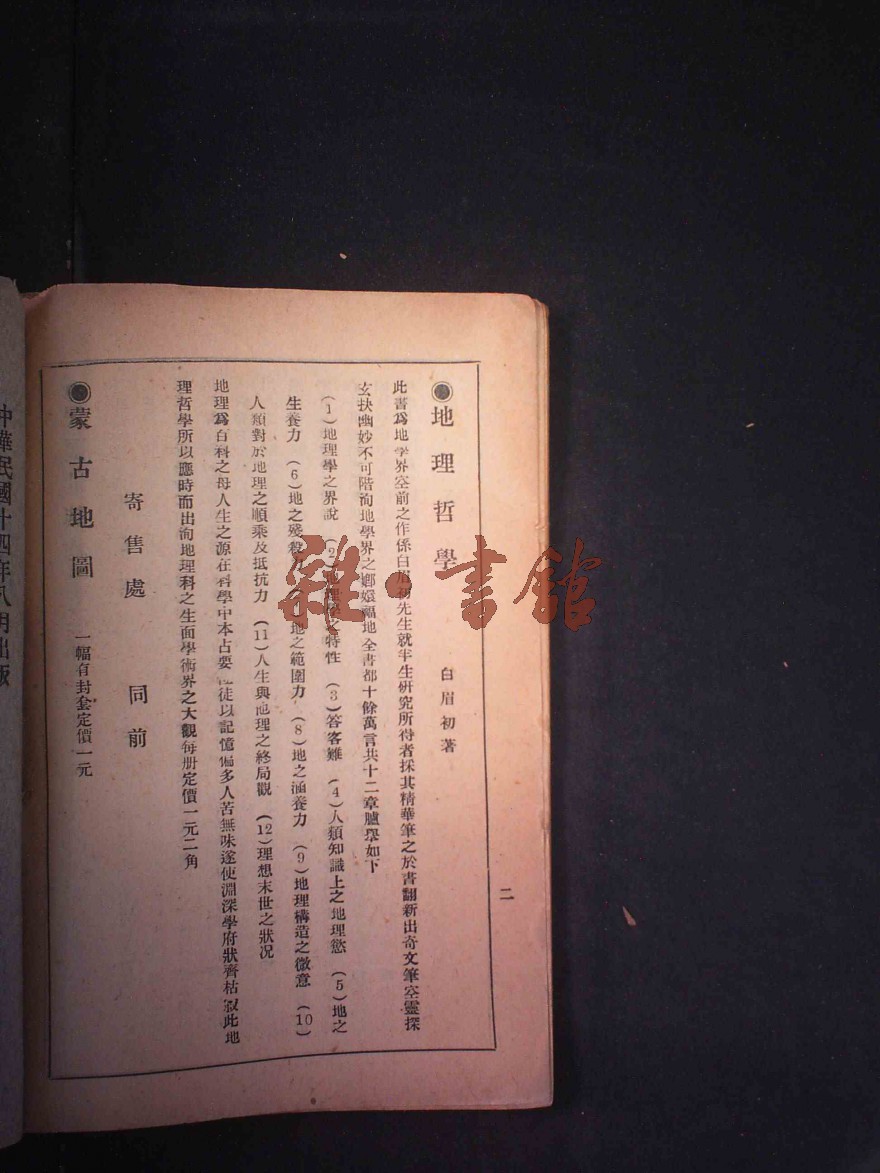 二
●地理哲學 白眉初著
此書爲地學界空前之作係白眉初先生就半生研究所得者採其精華筆之於書翻新出奇文筆空靈探
玄抉幽妙不可階洵地學界之嫏嬛福地全書都十餘萬言共十二章臚舉如下
(1)地理學之界說 (2)地理學之特性 (3)答客難 (4)人類知識上之地理慾 (5)地之
生養力 (6)地之殘殺力 (7)地之範圍力 (8)地之涵養力 (9)地理構造之微意 (10)
人類對於地理之順乘及抵抗力 (11)人生與地理之終局觀 (12)理想末世之狀况
地理爲百科之母人生之源在科學中本占要 徒以記憶偏多人苦無味遂使淵深學府狀齊枯寂此地
理哲學所以應時而出洵地理科之生面學術界之大觀每册定價一元二角
寄售處 同前
●蒙古地圖 一幅有封套定價一元
中華民國十四年八月出版
雜·書館